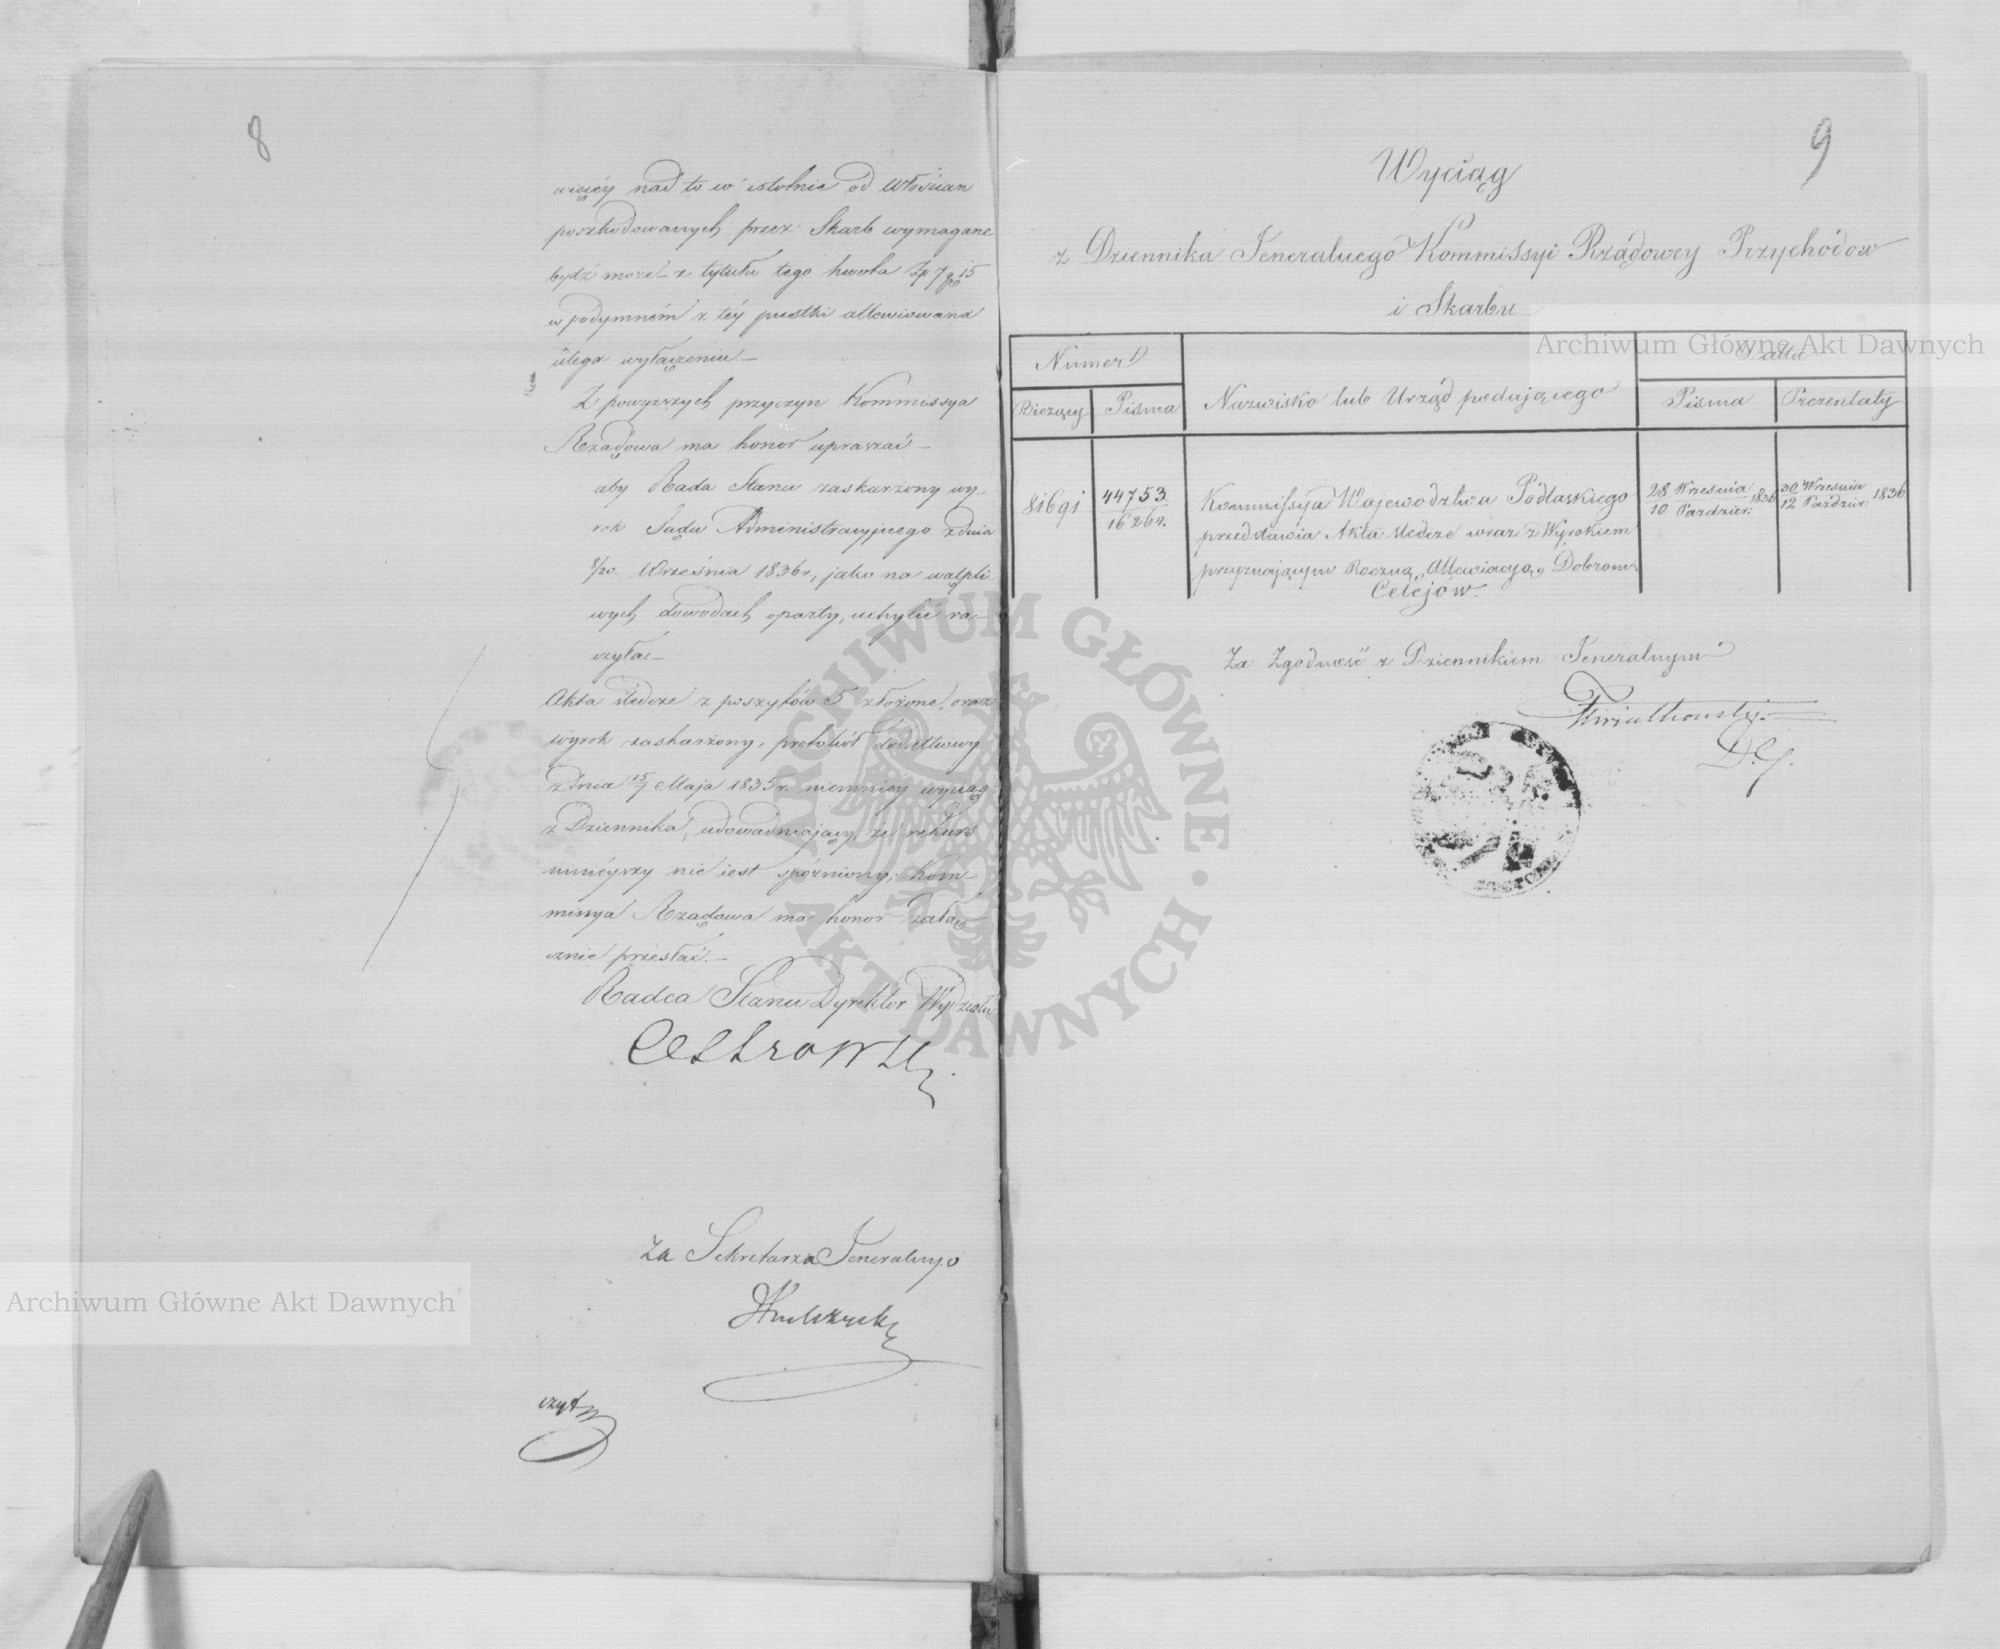 8
więcéy nad to w istotnie od Włościan
poszkodowanych przez Skarb wymagane
bydź może z tytułu tego kwota Zp 7 gr 15
w podymném z téy pustki allewiowana
ulega wyłączeniu
Z powyższych przyczyn Kommissya
Rządowa ma honor upraszać
aby Rada Stanu zaskarżony wy-
rok Sądu Administracyjnego z dnia
8/20 Września 1836 r, jako na wątpli-
wych dowodach oparty, uchylić ra-
czyła
Akta śledcze z poszytów 5 złożone, oraz
wyrok zaskarżony, protokół dodatkowy
z dnia 15/ Maja 1835 r. niemniey wyciąg
z Dziennika, udowadniający że rekurs
ninieyszy nie iest spóźniony, Kom-
missya Rządowa ma honor załą-
cznie przesłać.
Radca Stanu Dyrektor Wydziału
Za Sekretarza Jeneralnego
czyt
9
Wyciąg
z Dziennika Jeneralnego Kommissyi Rządowey Przychodów
i Skarbu
Numer
Bieżący
Pisma
Nazwisko lub Urząd podającego
Data
Pisma
Prezentaty
81691
44753
16264.
Kommissya Wojewodztwa Podlaskiego
przedstawia Akta śledcze wraz z Wyrokiem
przyznającym Roczną Allewiacyą Dobrom
Celejów.
28 Września
10 Paździer: 1836
30 Września
12 Paździer: 1836
Za Zgodność z Dziennikiem Jeneralnym
D. J.
Archiwum Główne Akt Dawnych
Archiwum Główne Akt Dawnych
ARCHIWUM GŁÓWNE AKT DAWNYCH